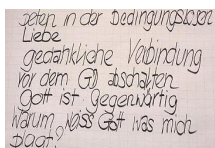 beten in der Bedingungslosen
Liebe
gedankliche Verbindung
vor dem abschalten
Gott ist Gegenwärtig
warum weiss Gott was mich
plagt?